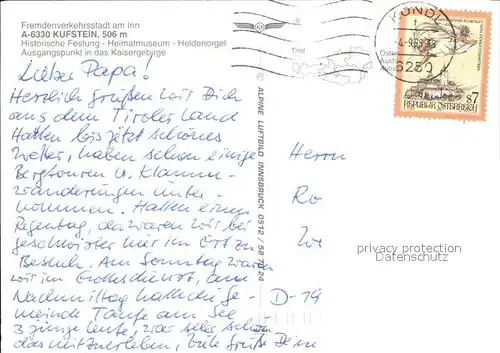 Fremdenverkehrsstadt am Inn
A-6330 KUFSTEIN, 506 m
Historische Festung - Heimatmuseum - Heldenorgel
Ausgangspunkt in das Kaisergebirge
Lieber Papa!
Herzlich grüßen wir Dich
aus dem Tiroler Land
Hatten bis jetzt schönes
Wetter, haben schon einige
Bergtouren u. Klamm-
wanderungen unter-
nommen. Hatten einen
Regentag, da waren wir bei
geschwister hier im Ort zu
Besuch. Am Sonntag waren
wir im Gottesdienst, am
Nachmittag hatte die Ge-
meinde Taufe am See
3 junge Leute, war sehr schön
das mitzuerleben, viele Grüße Dein
© ALPINE LUFTBILD INNSBRUCK 0512 / 58 70 24
Tirol
KUNDL
6250
s7
REPUBLIK ÖSTERREICH
Herrn
Ro
D-79
privacy protection
Datenschutz